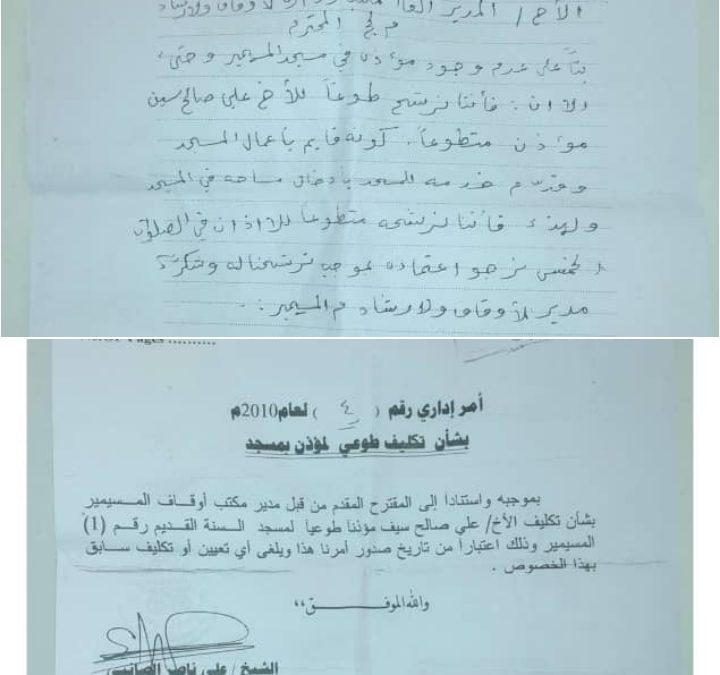 الأخ / المدير العام لمكتب
م لحج المحترم
بناً على عدم وجود مؤذن في مسجد المسيمير وحتى
الان : فأننا نرشح طوعاً للأخ علي صالح سيف
مؤذن متطوعاً. كونه قايم بأعمال المسجد
وقدم خدمه للمسجد بأدخال مساحه في المسجد
ولهذ فأننا نرشحه متطوعاً للاذان في الصلوات
الخمس نرجو اعتماده بموجب ترشحنا له وشكراً
مدير الأوقاف ولارشاد م المسيمير :.
أمر إداري رقم ( ٤ ) لعام2010م
بشأن تكليف طوعي لمؤذن بمسجد
بموجبه واستنادا إلى المقترح المقدم من قبل مدير مكتب أوقاف المسيمير
بشأن تكليف الأخ/ علي صالح سيف مؤذنا طوعيا لمسجد السنة القديم رقم (1)
المسيمير وذلك اعتباراً من تاريخ صدور أمرنا هذا ويلغى أي تعيين أو تكليف سابق
بهذا الخصوص .
والله الموفق،،
الشيخ / علي ناصر